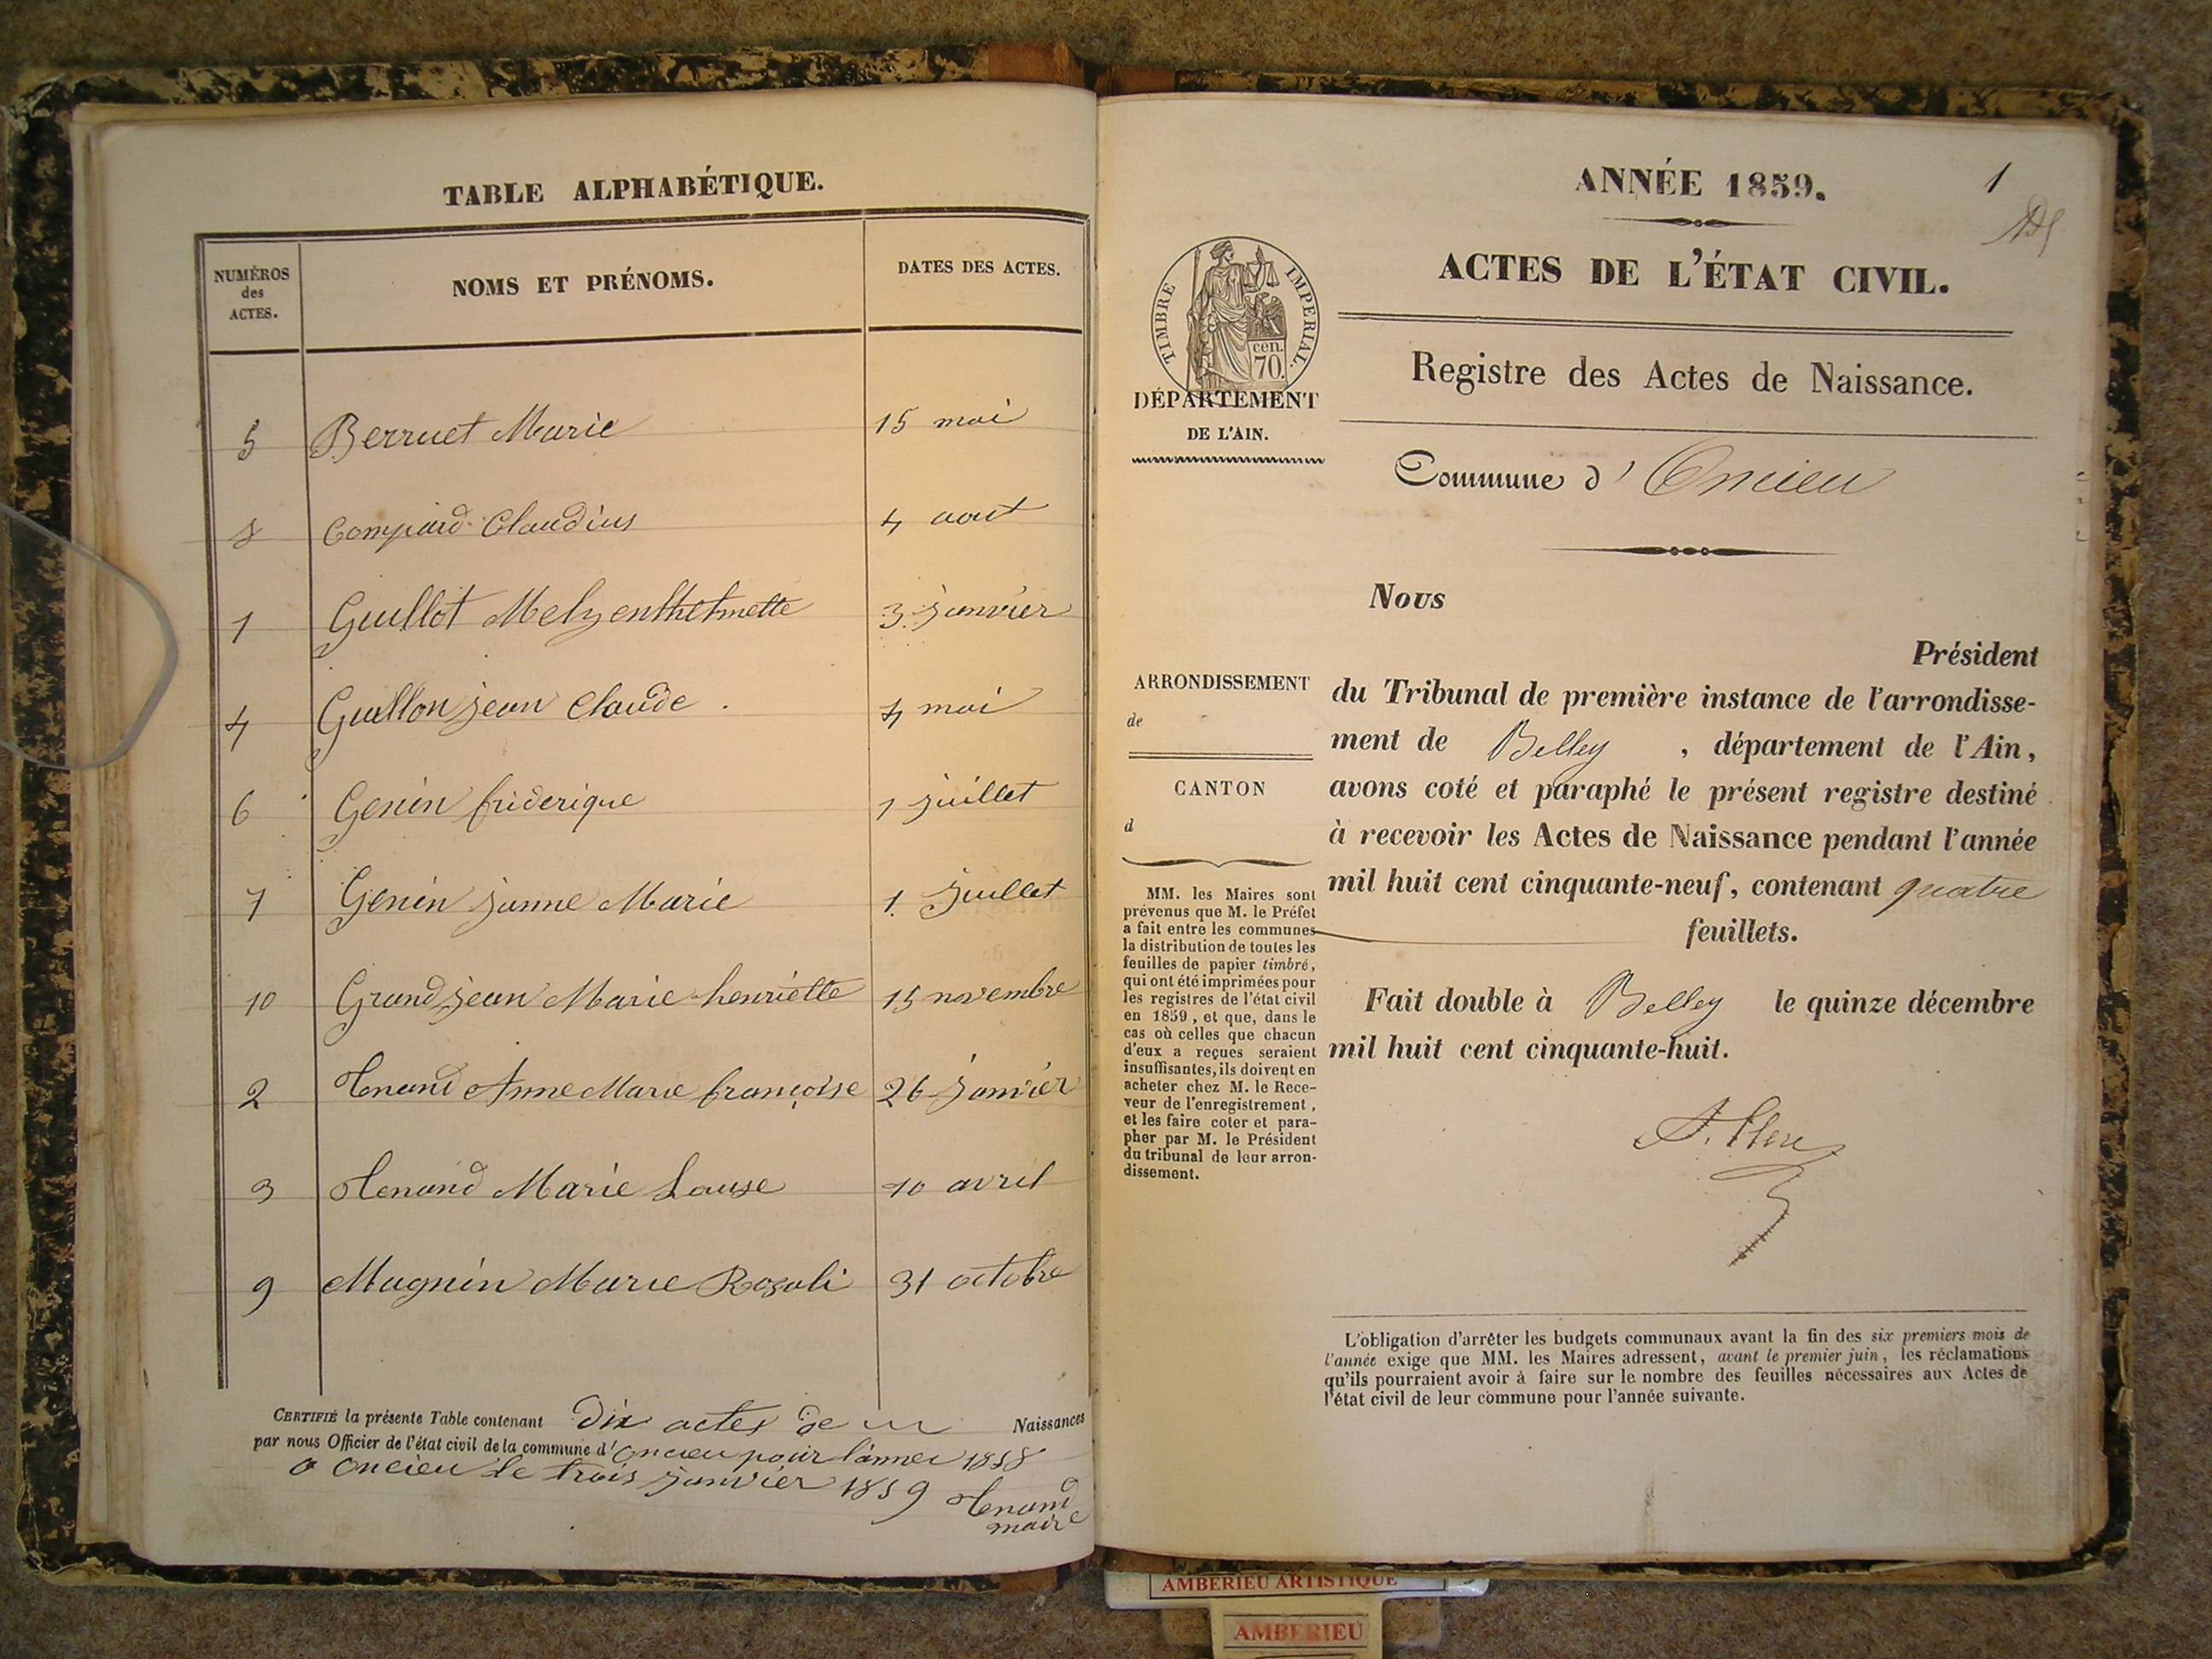 TABLE ALPHABÉTIQUE.
NUMÉROS des ACTES. NOMS ET PRÉNOMS. DATES DES ACTES.
5 Berruet Marie 15 mai
8 Compard Claudius 4 aout
1 Guillot 3 janvier
4 Guillon jean Claude 4 mai
6 Genin friderique 1 juillet
7 Genin janne Marie 1. juillet
10 Grandjean Marie henriette 15 novembre
2 Tenand Anne Marie françoise 26 janvier
3 Tenand Marie Louse 10 avril
9 Magnin Marie Rosali 31 octobre
CERTIFIÉ la présente Table contenant Dix actes de Naissances
par nous Officier de l'état civil de la commune d'Oncieu pour l'annee 1858
a Oncieu le trois janvier 1859
Tenand
maire
ANNÉE 1859.
1
TIMBRE IMPERIAL.
cen.
70.
ACTES DE L'ÉTAT CIVIL.
Registre des Actes de Naissance.
DÉPARTEMENT
DE L'AIN.
Commune d'Oncieu
Nous
Président
du Tribunal de première instance de l'arrondisse-
ment de Belley , département de l'Ain,
avons coté et paraphé le présent registre destiné
à recevoir les Actes de Naissance pendant l'année
mil huit cent cinquante-neuf, contenant quatre
feuillets.
Fait double à Belley le quinze décembre
mil huit cent cinquante-huit.
ARRONDISSEMENT
de
CANTON
d
MM. les Maires sont
prévenus que M. le Préfet
a fait entre les communes
la distribution de toutes les
feuilles de papier timbré,
qui ont été imprimées pour
les registres de l'état civil
en 1859, et que, dans le
cas où celles que chacun
d'eux a reçues seraient
insuffisantes, ils doivent en
acheter chez M. le Rece-
veur de l'enregistrement,
et les faire coter et para-
pher par M. le Président
du tribunal de leur arron-
dissement.
L'obligation d'arrêter les budgets communaux avant la fin des six premiers mois de
l'année exige que MM. les Maires adressent, avant le premier juin, les réclamations
qu'ils pourraient avoir à faire sur le nombre des feuilles nécessaires aux Actes de
l'état civil de leur commune pour l'année suivante.
AMBERIEU ARTISTIQUE
AMBERIEU